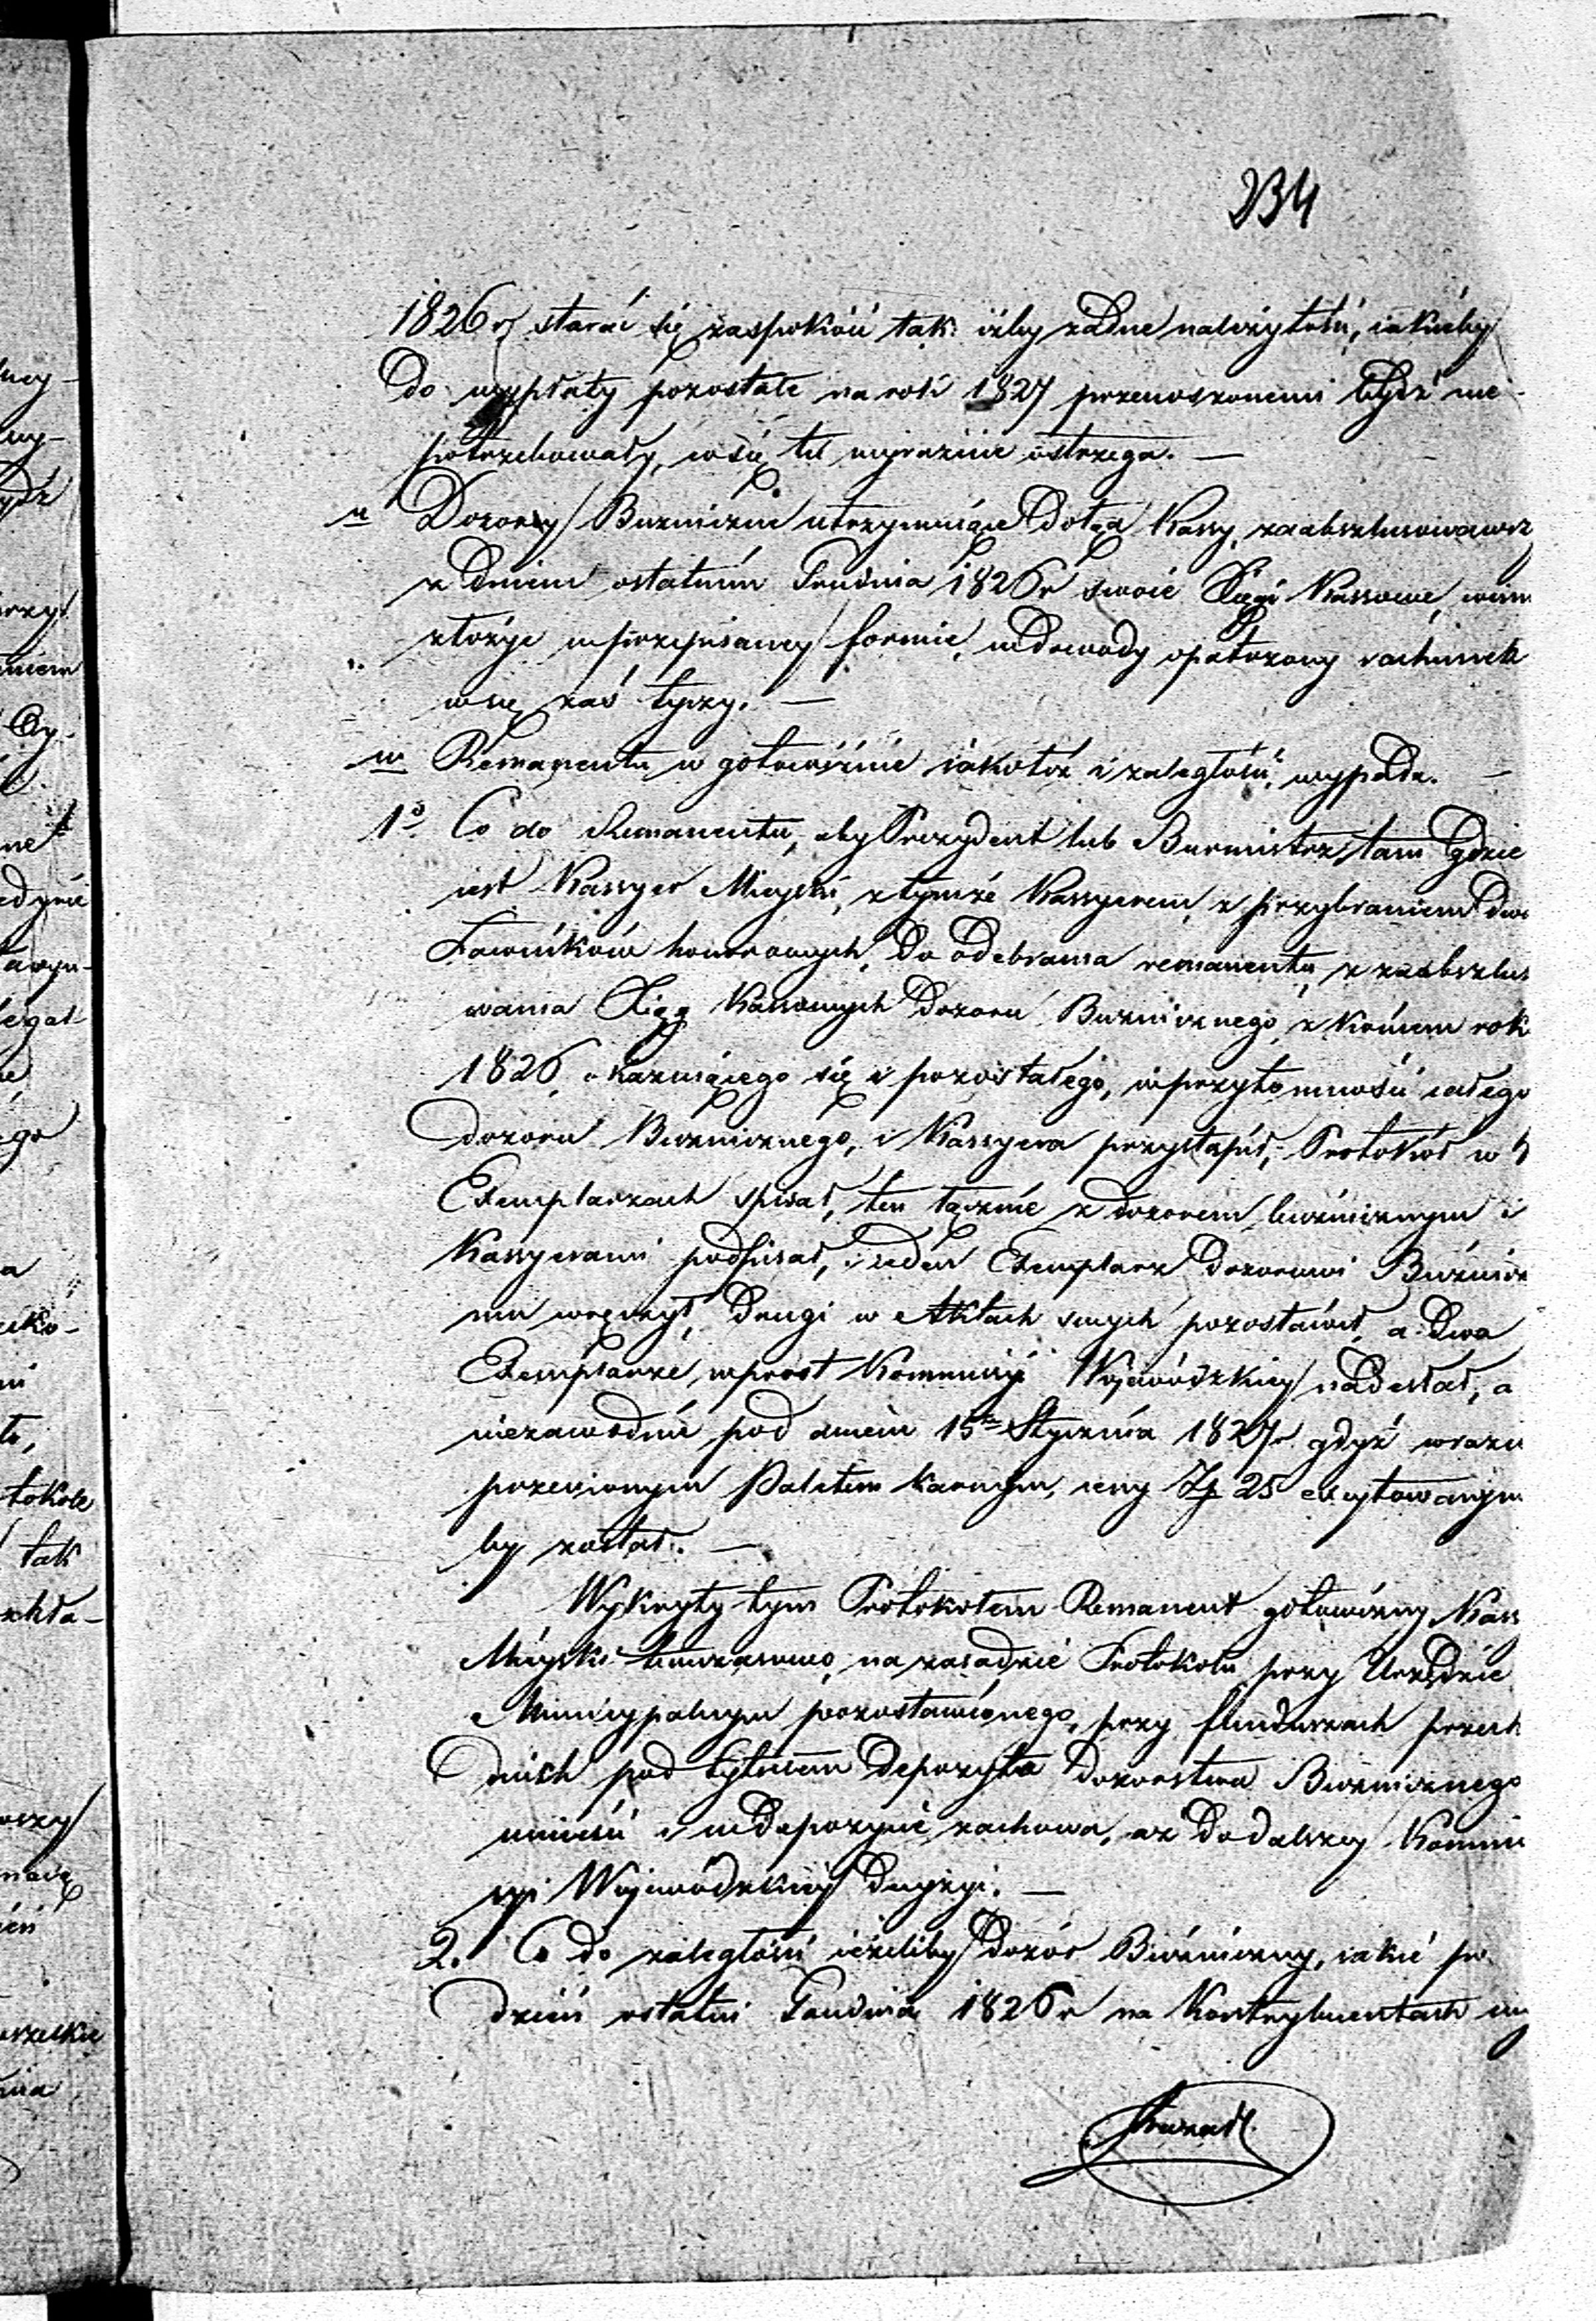 234
1826 r. starać się zaspokoić tak iżby żadne należytości, iakieby
do wypłaty pozostałe na rok 1827 przenoszonemi bydź nie
potrzebowały, co się też wyraźnie ostrzega. —
Dozory Bużnicze utrzymuiące dotąd Kassy, zaabszlusowawsz
z dniem ostatnim Grudnia 1826 r swoie Xięgi Kassowe,
złożyć w przepisaney formie, w dowody opatrzony rachunek
co się zaś tyczy. —
Remanentu w gotowiźnie iakoteż i zaległości, wypada. —
1º Co do Remanentu, aby Prezydent lub Burmistrz, tam gdzie
iest Kassyer Mieyski, z tymże Kassyerem, z przybraniem dwo
Ławników honorowych, do odebrania remanentu, z zaabszlus
wania Xiąg Kassowych Dozoru Bużnicznego, z końcem rok
1826 okazuiącego się i pozostałego, w przytomności całego
dozoru Bużnicznego, i Kassyera przystąpił, Protokół w 4
Exemplarzach spisał, ten łącznie z dozorem bużnicznym i
Kassyerami podpisał, i ieden Exemplarz Dozorowi Bużnicz
mu wręczył, drugi w Aktach swych pozostawił, a dwa
Exemplarze wprost Kommissyi Woiewódzkiey nadesłał, a
niezawodnie pod dniem 15 Stycznia 1827 r gdyż w razie
przeciwnym Paletem karnym, ceny Zł 25 excytowanym
by został. —
Wykryty tym Protokołem Remanent gotowizny Kass
Mieyski tymczasowo, na zasadzie Protokołu przy Urzędzie
Municypalnym pozostawionego, przy funduszach przech
dnich pod tytułem Depozyta Dozorstwa Bużnicznego
umieści i w depozycie zachowa, aż do dalszey Kommis
syi Woiewódzkiey decyzyi. —
2. Co do zaległości ieżeliby Dozór Bużniczny, iakie po
dzień ostatni Grudnia 1826 r na Kontrybuentach